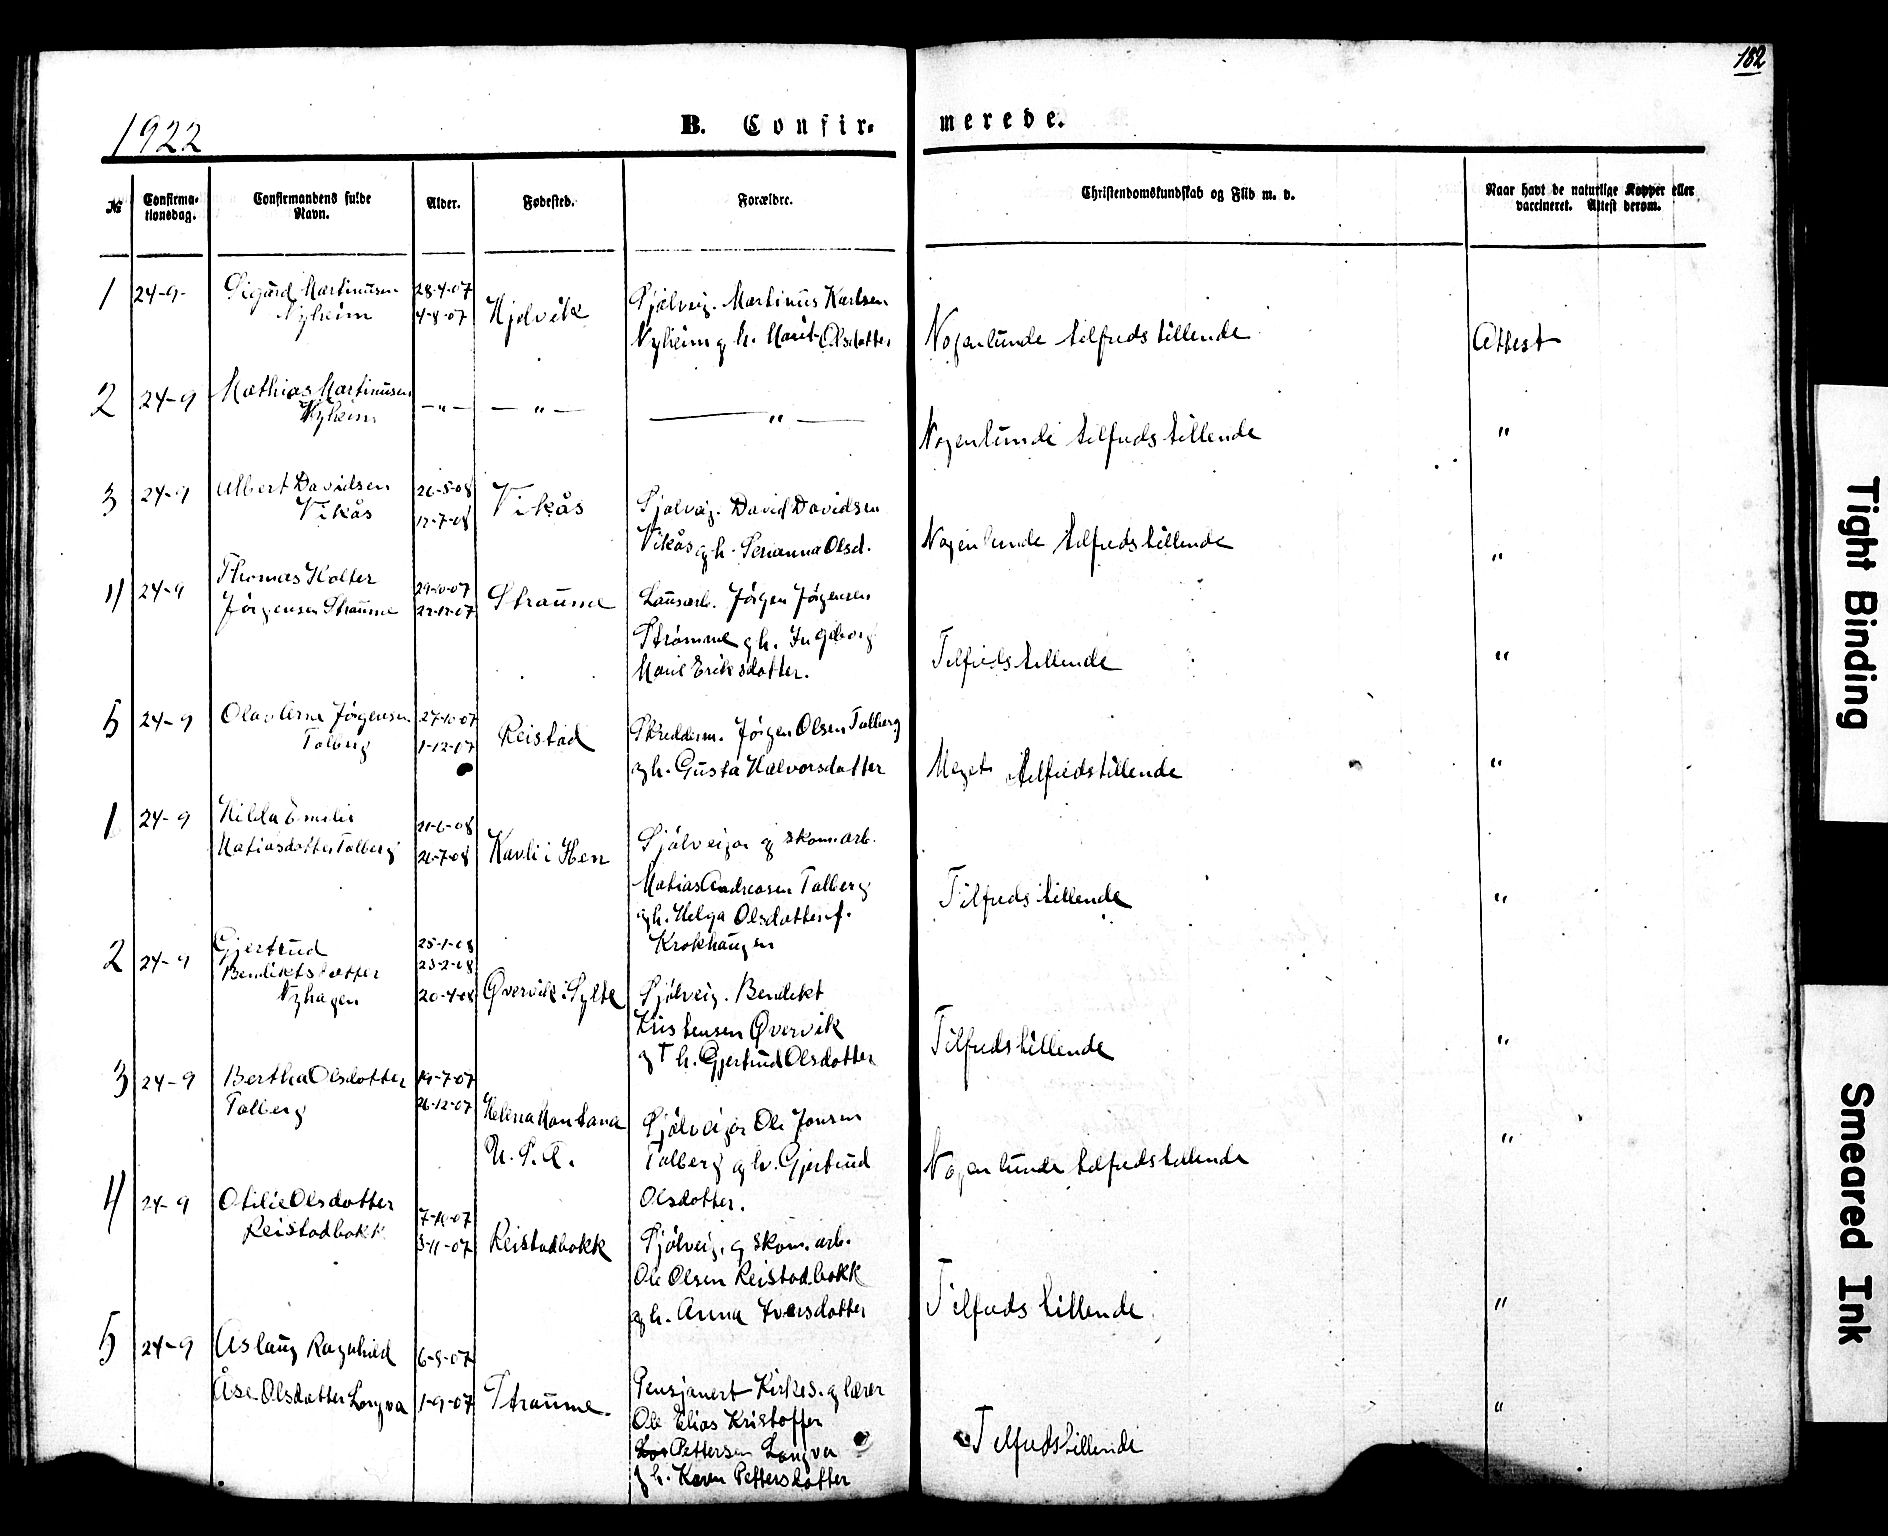 182
1922
B. Confir-
merede.
№
Confirma-
tionsdag.
Confirmandens fulde
Navn.
Alder.
Fødested.
Forældre.
Christendomskundskab og Flid m. v.
Naar havt de naturlige Kopper eller
vaccineret. Attest derom.
1 24-9- Sigurd Martinusen 28-4-07
Nyheim 4-8-07 Hjelvik Sjølveig. Martinus Karlsen
Nyheim g h. Marit Olsdotter Nogenlunde tilfredstillende Attest
2 24-9 Mathias Martinusen
Nyheim — " — — " — — " —
Nogenlunde tilfredstillende "
3 24-9 Albert Davidsen 26-5-08
Vikås 12-7-08 Vikås Sjølveig. David Davidsen
Vikås g h. Serianna Olsd. Nogenlunde tilfredstillende "
4 24-9 Thomas Holter 29-10-07
Jørgensen Straume 22-12-07 Straume Lausarb. Jørgen Jørgensen
Strømme g h. Ingeborg
Marie Eriksdotter. Tilfredstillende "
5 24-9 Olav Arne Jørgensen 27-10-07
Talberg 1-12-07 Reistad Skredderm. Jørgen Olsen Talberg
g h. Gusta Halvorsdotter Meget tilfredstillende "
1 24-9 Hilda Emilie 21-6-08
Matiasdotter Talberg 26-7-08 Kavli i Hen Sjølveigar g skomarb.
Matias Andreasen Talberg
g h. Helga Olsdotter f.
Krokhaugen Tilfredstillende "
2 24-9 Gjertrud 25-1-08
Bendiktsdotter 23-2-08
Nyhagen 20-4-08 Øvervik i Sylte Sjølveig. Bendikt
Kristensen Øvervik
g T h. Gjertrud Olsdotter Tilfredstillende "
3 24-9 Bertha Olsdotter 19-7-07
Talberg 26-12-07 Helena Montana
U. S. A. Sjølveigar Ole Jonsen
Talberg g h. Gjertrud
Olsdotter. Nogenlunde tilfredstillende "
4 24-9 Otilie Olsdotter 7-10-07
Reistadbakk 3-11-07 Reistadbakk Sjølveig. g skom. arb.
Ole Olsen Reistadbakk
g h. Anna Iversdotter Tilfredstillende "
5 24-9 Aslaug Ragnhild 6-5-07
Åse Olsdotter Langva 1-9-07 Straume. Pensjonert Kirkes. g lærer
Ole Elias Kristoffer
Pettersen Langva
g h. Karen Pettersdotter Tilfredstillende "
Tight Binding
Smeared Ink